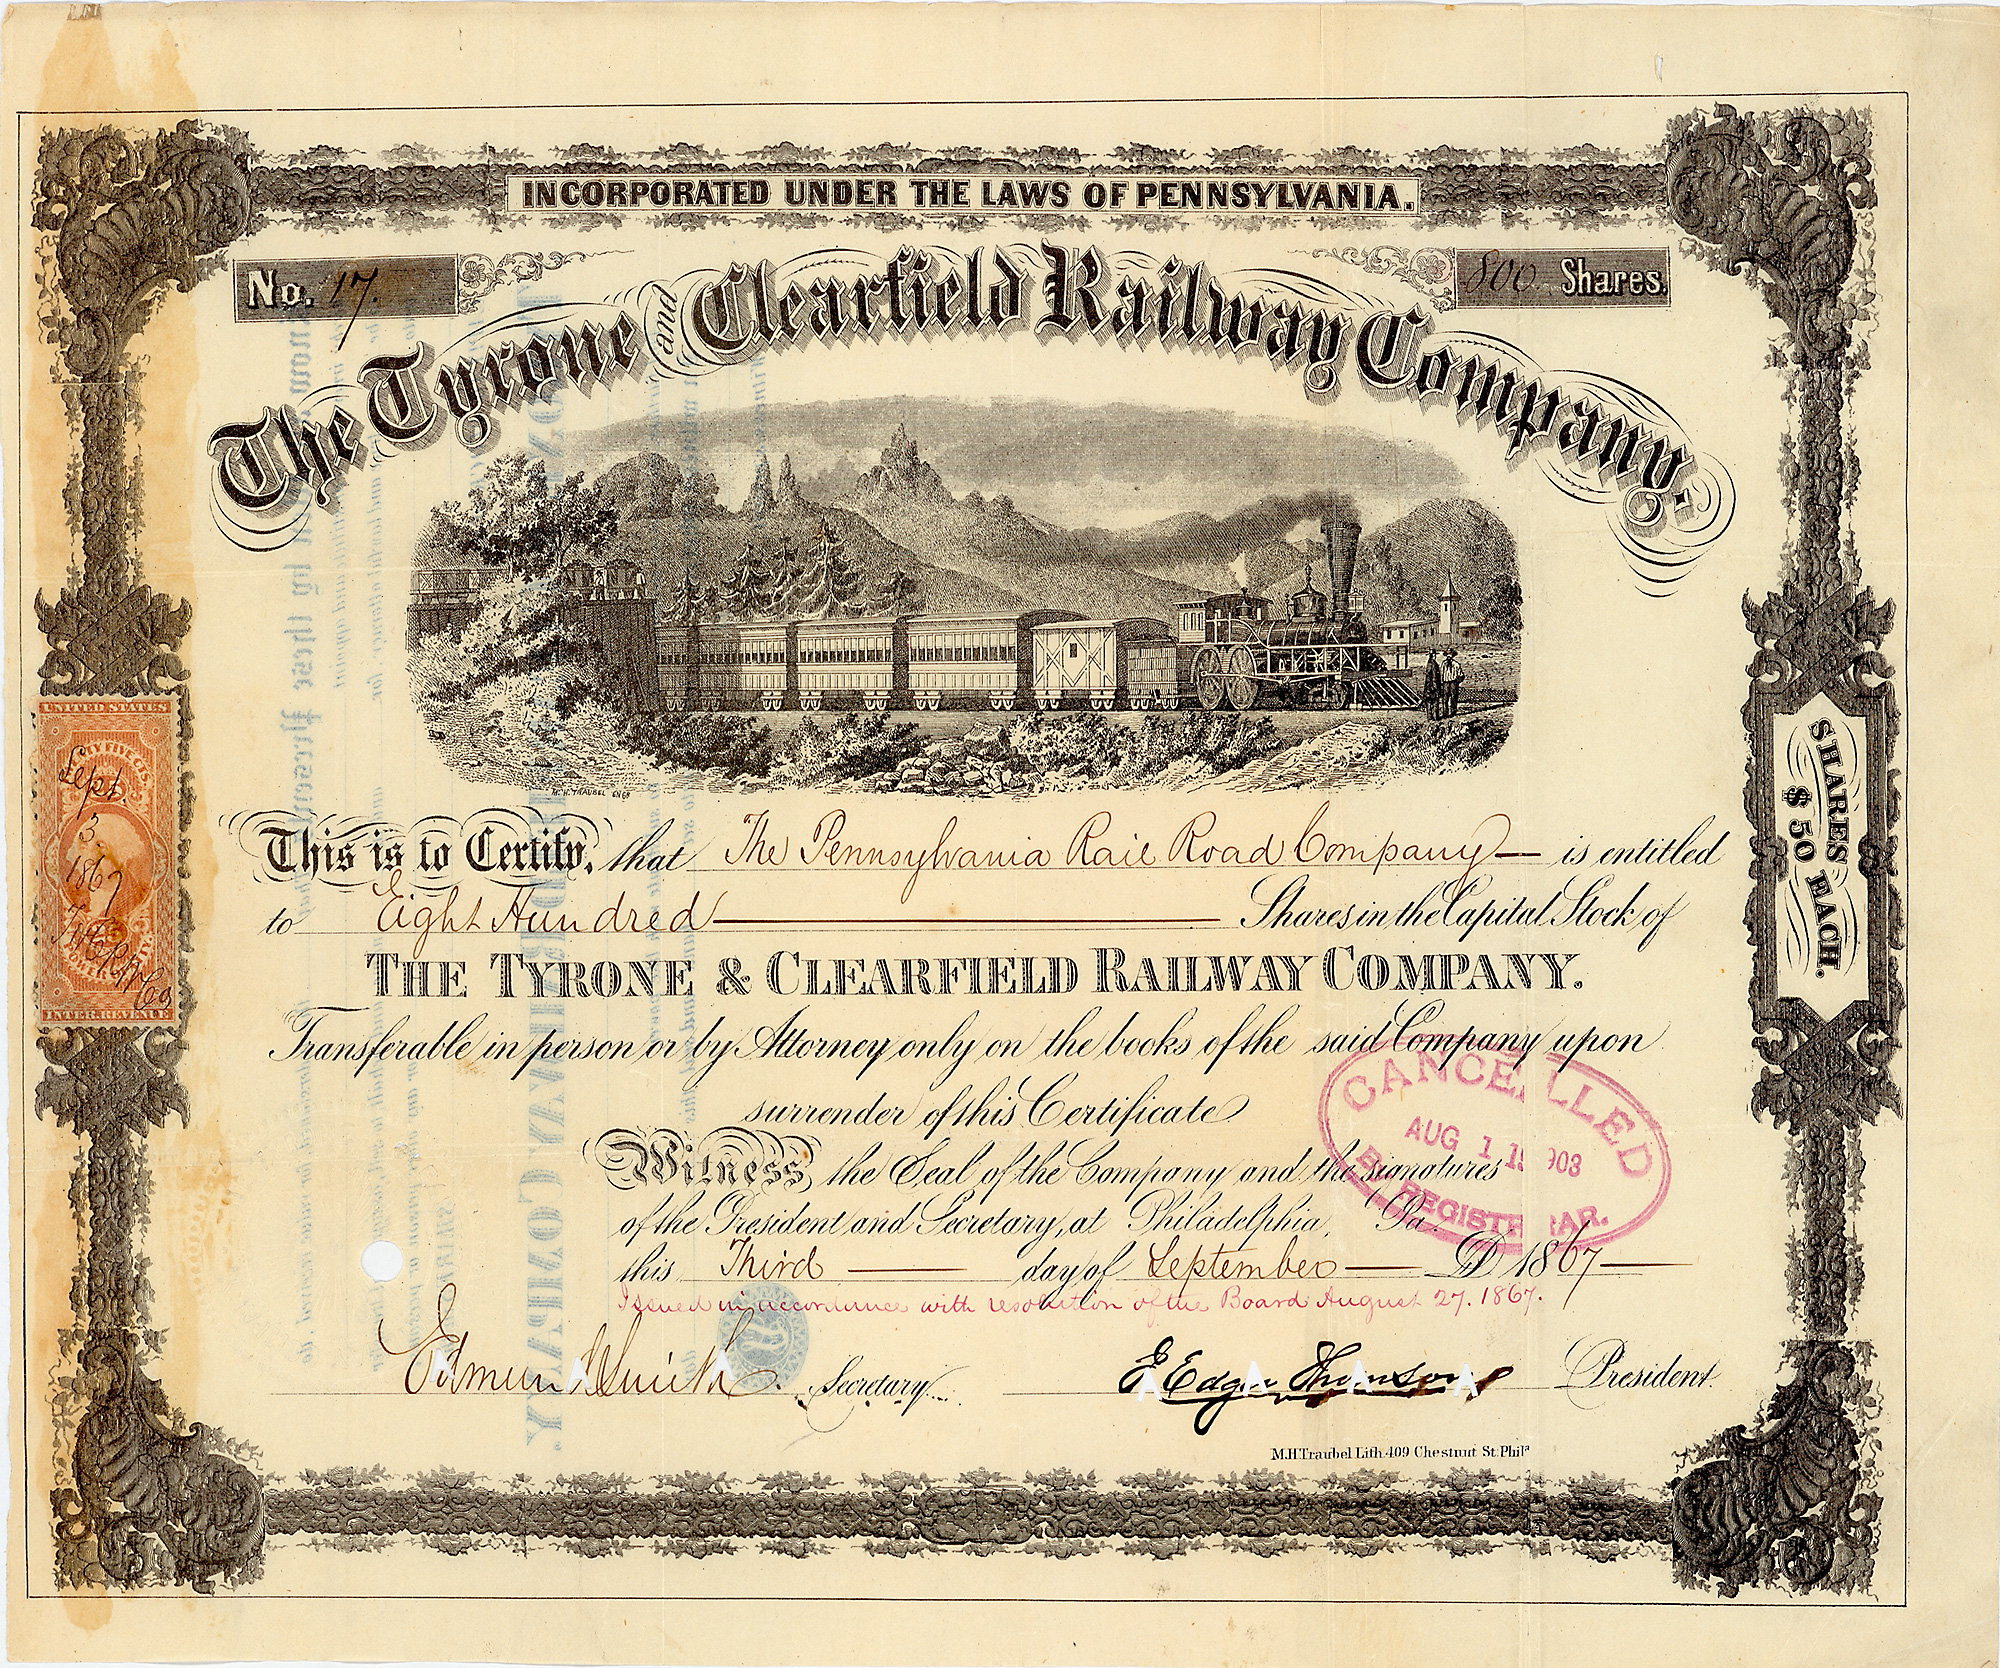 INCORPORATED UNDER THE LAWS OF PENNSYLVANIA.
No. 17.
800 Shares.
The Tyrone and Clearfield Railway Company.
M.H. TRAUBEL ENGR
UNITED STATES
Sept.
3.
1867
INTER. REVENUE
SHARES $50 EACH.
This is to Certify, that The Pennsylvania Rail Road Company is entitled
to Eight Hundred Shares in the Capital Stock of
THE TYRONE & CLEARFIELD RAILWAY COMPANY.
Transferable in person or by Attorney only on the books of the said Company upon
surrender of this Certificate
CANCELLED
AUG 1 1903
REGISTRAR.
Witness, the Seal of the Company and the signatures
of the President and Secretary, at Philadelphia, Pa.
this Third day of September AD 1867
Issued in accordance with resolution of the Board August 27. 1867.
Edmund Smith. Secretary.
J. Edgar Thomson President.
M.H. Traubel Lith. 409 Chestnut St. Phila